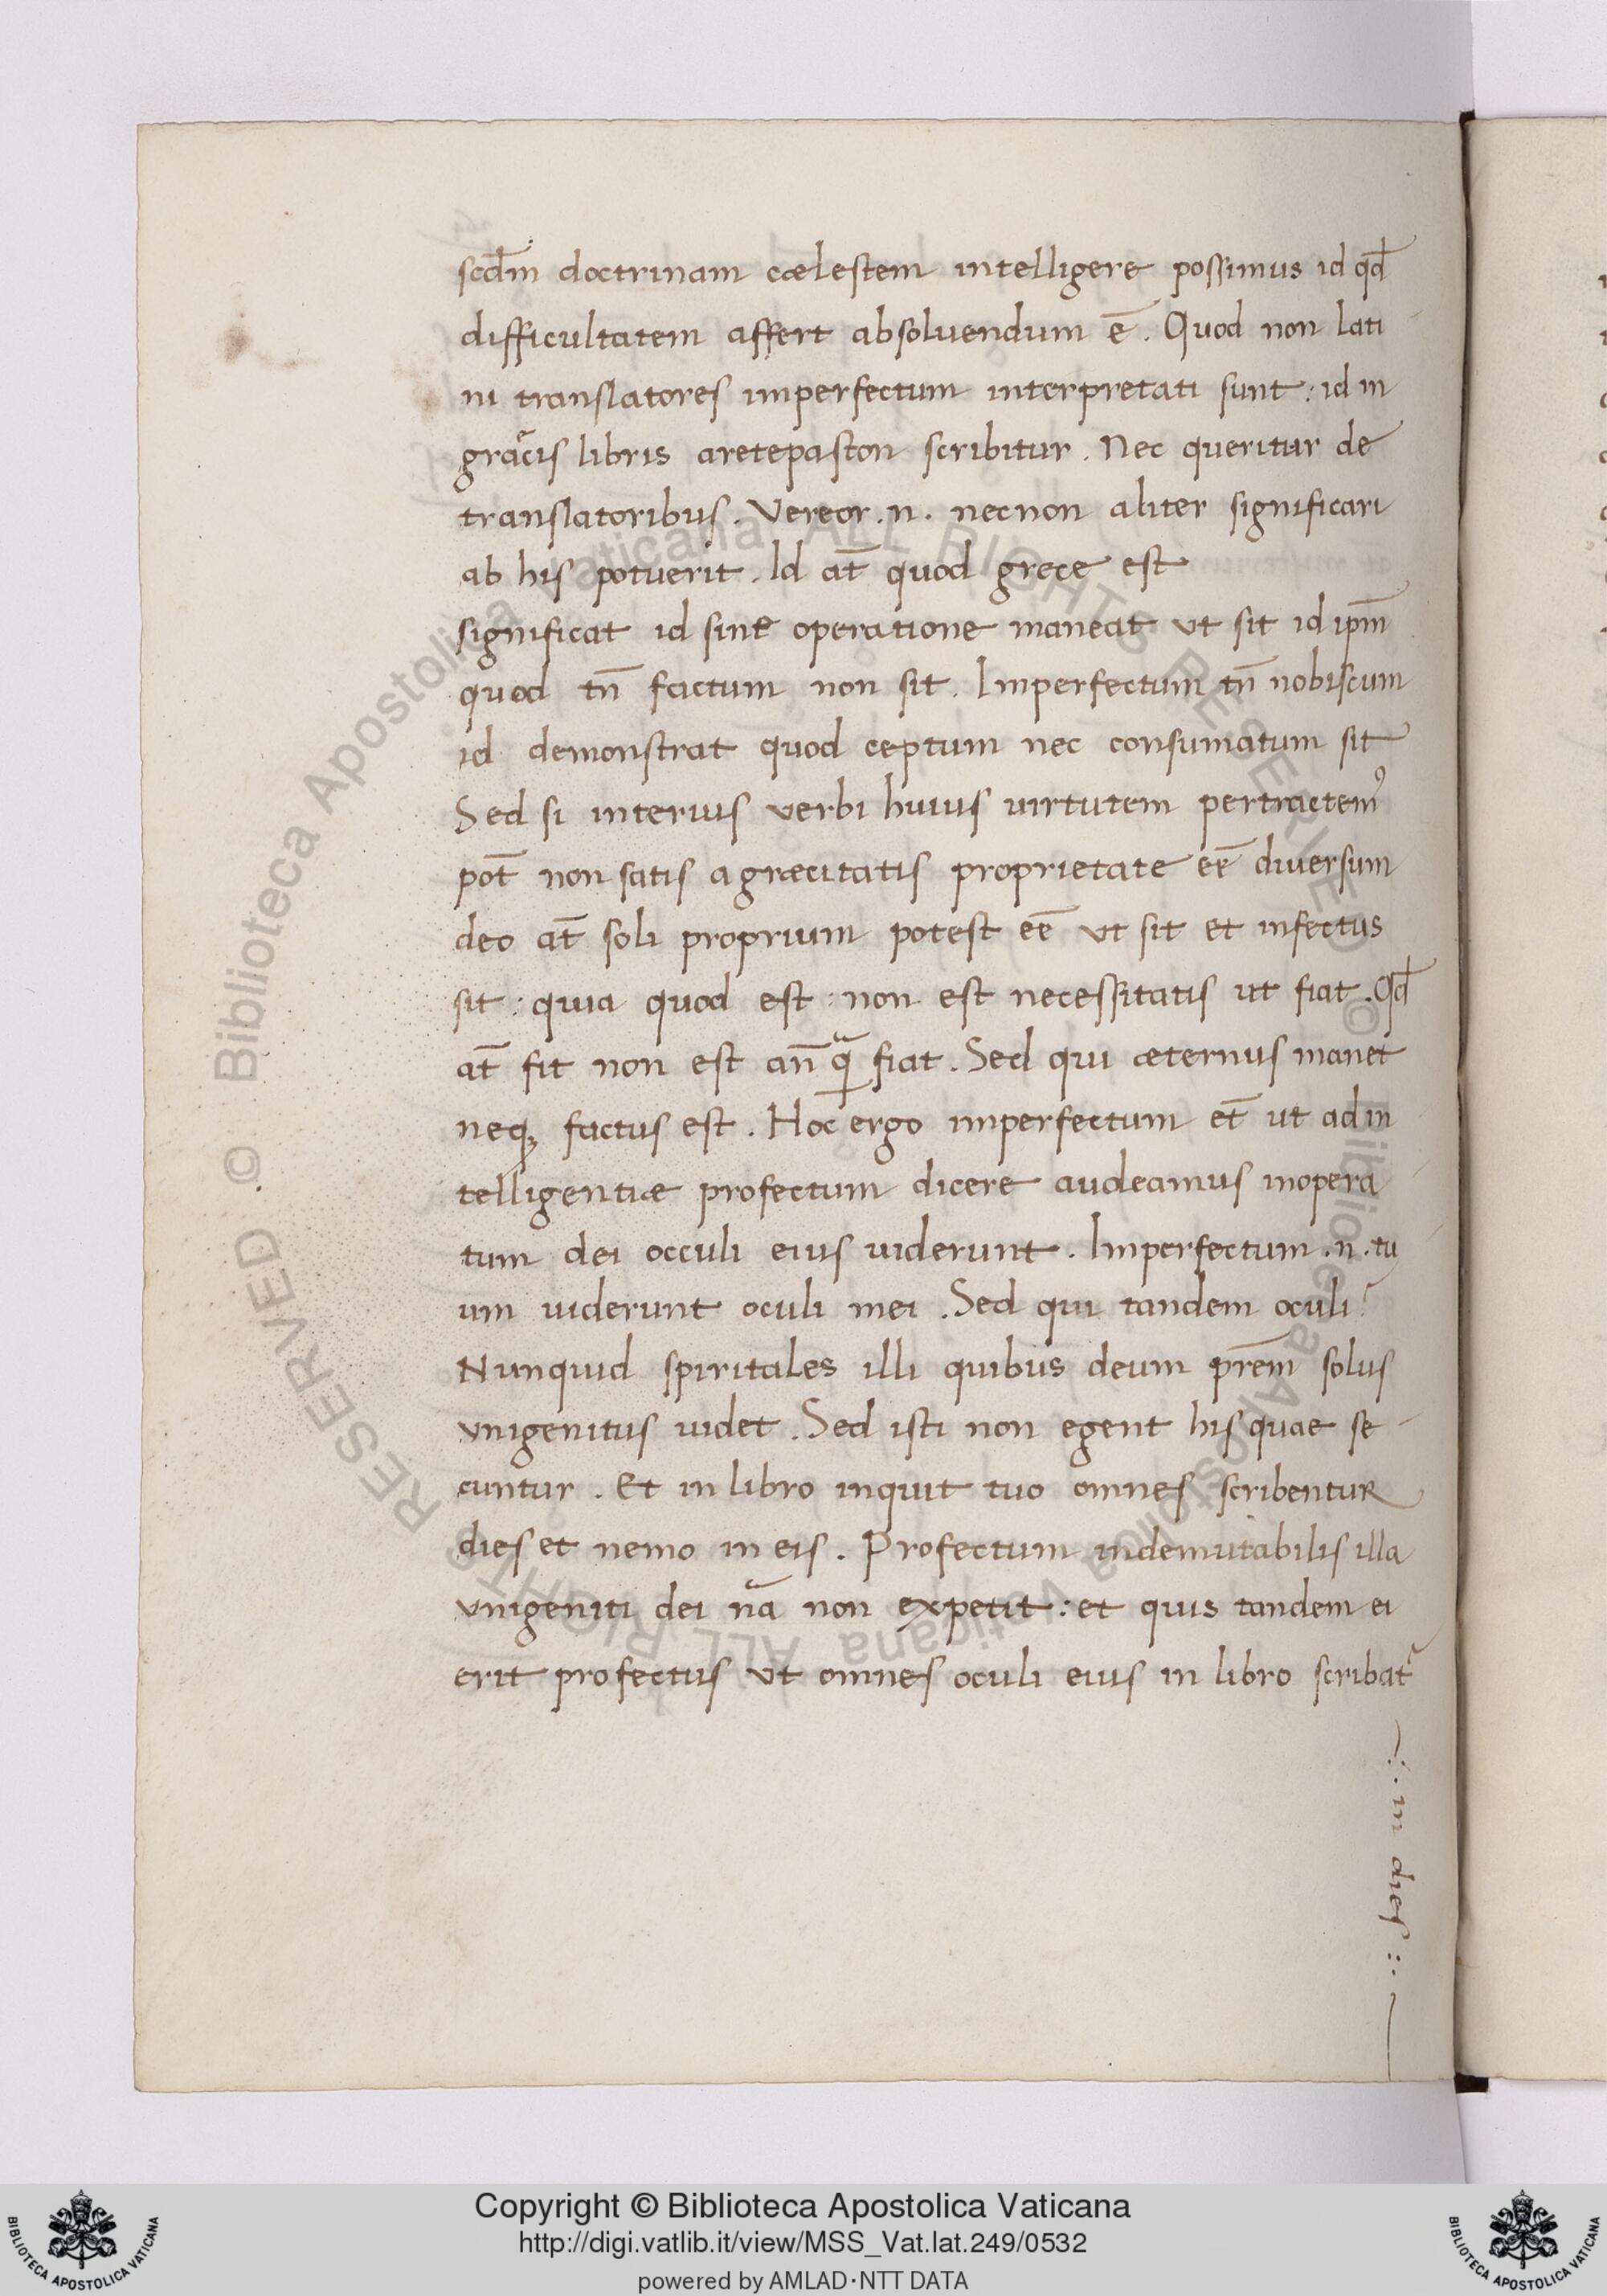 scd̄m doctrinam cælestem intelligere possimus id qd̄
difficultatem affert absoluendum ē. Quod non lati
ni translatores imperfectum interpretati sunt: id in
græcis libris aretepaston scribitur. Nec queritur de
translatoribus. Vereor .n. necnon aliter significari
ab his potuerit. Id at̄ quod grece est
significat id sine operatione maneat ut sit id ipm̄
quod tn̄ factum non sit. Imperfectum tn̄ nobiscum
id demonstrat quod ceptum nec consumatum sit
Sed si interius verbi huius uirtutem pertractem⁹
pot̄ non satis a græcitatis proprietate eē diuersum
deo at̄ soli proprium potest eē ut sit et infectus
sit: quia quod est: non est necessitatis ut fiat. Qd̄
at̄ fit non est an̄ q̃ fiat. Sed qui æternus manet
neq; factus est. Hoc ergo imperfectum et̄ ut ad in
telligentiæ profectum dicere audeamus inopera
tum dei occuli eius uiderunt. Imperfectum .n. tu
um uiderunt oculi mei. Sed qui tandem oculi?
Nunquid spiritales illi quibus deum prem̄ solus
vnigenitus uidet. Sed isti non egent his quae se
cuntur. Et in libro inquit tuo omnes scribentur
dies et nemo in eis. Profectum indemutabilis illa
vnigeniti dei nā non expetit: et quis tandem ei
erit profectus ut omnes oculi eius in libro scribat᷑
in dies
Copyright © Biblioteca Apostolica Vaticana
http://digi.vatlib.it/view/MSS_Vat.lat.249/0532
powered by AMLAD·NTT DATA
BIBLIOTECA APOSTOLICA VATICANA
BIBLIOTECA APOSTOLICA VATICANA
© Biblioteca Apostolica Vaticana ALL RIGHTS RESERVED © Biblioteca Apostolica Vaticana ALL RIGHTS RESERVED